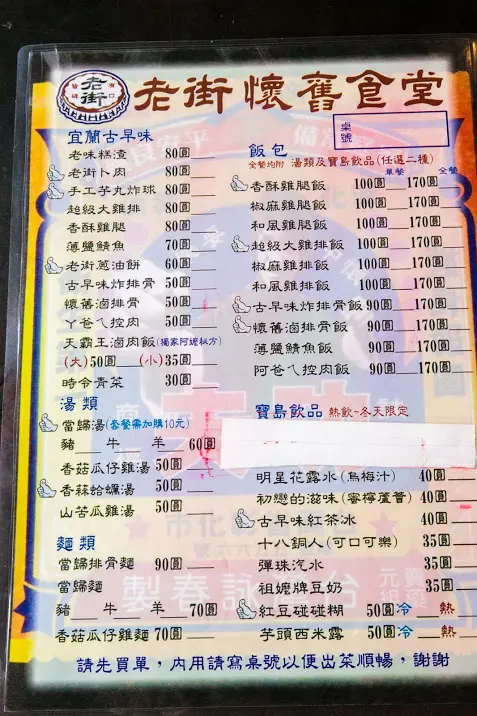 老街
老街懷舊食堂
桌號
宜蘭古早味
老味糕渣 80圓
老街卜肉 80圓
手工芋丸炸球 80圓
超級大雞排 80圓
香酥雞腿 80圓
薄鹽鯖魚 70圓
老街蔥油餅 60圓
古早味炸排骨 50圓
懷舊滷排骨 50圓
丫爸ㄟ控肉 50圓
天霸王滷肉飯(獨家阿嬤秘方)
(大)50圓 (小)35圓
時令青菜 30圓
湯類
當歸湯(套餐需加購10元)
豬 牛 羊 60圓
香菇瓜仔雞湯 50圓
香菻蛤蠣湯 50圓
山苦瓜雞湯 50圓
麵類
當歸排骨麵 90圓
當歸麵
豬 牛 羊 70圓
香菇瓜仔雞麵 70圓
飯包
全餐均附 湯類及寶島飲品(任選二種)
單餐 全餐
香酥雞腿飯 100圓 170圓
椒麻雞腿飯 100圓 170圓
和風雞腿飯 100圓 170圓
超級大雞排飯 100圓 170圓
椒麻雞排飯 100圓 170圓
和風雞排飯 100圓 170圓
古早味炸排骨飯 90圓 170圓
懷舊滷排骨飯 90圓 170圓
薄鹽鯖魚飯 90圓 170圓
阿爸ㄟ控肉飯 90圓 170圓
寶島飲品 熱飲~冬天限定
明星花露水(烏梅汁) 40圓
初戀的滋味(蜜檸蘆薈) 40圓
古早味紅茶冰 40圓
十八銅人(可口可樂) 35圓
彈珠汽水 35圓
祖嬤牌豆奶 35圓
紅豆碰碰糊 50圓 冷 熱
芋頭西米露 50圓 冷 熱
請先買單，內用請寫桌號以便出菜順暢，謝謝